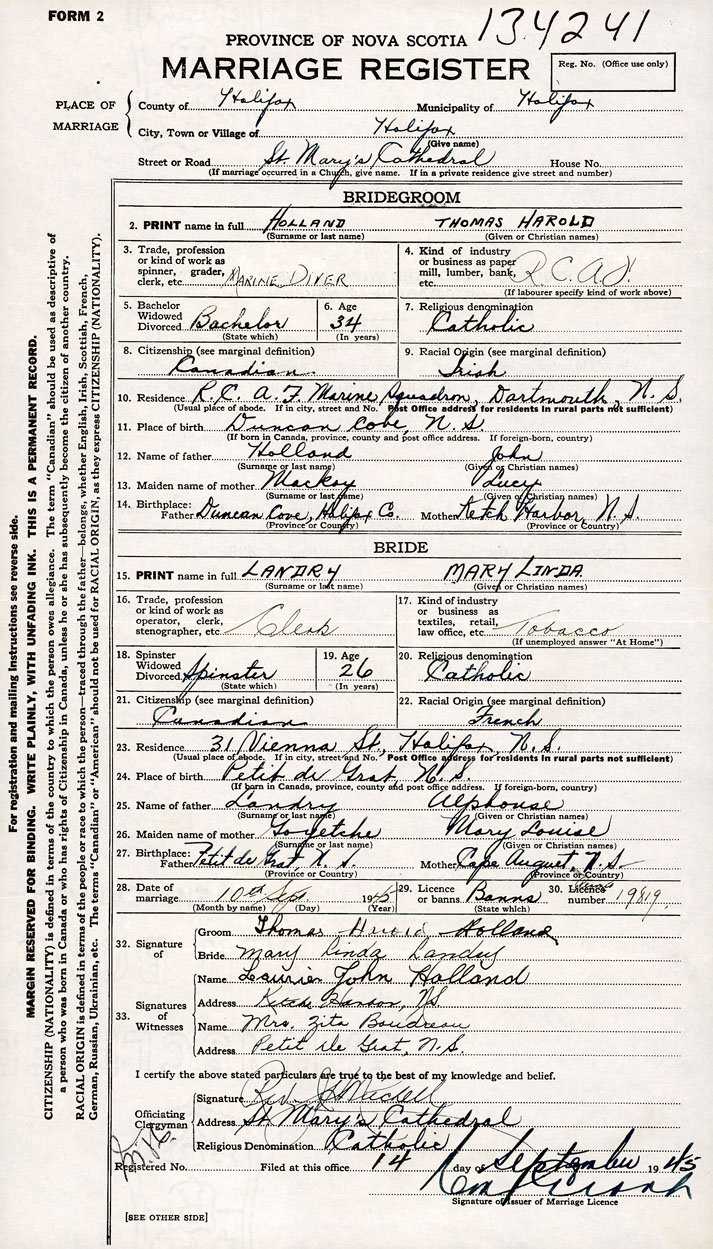 FORM 2
134241
PROVINCE OF NOVA SCOTIA
MARRIAGE REGISTER
Reg. No. (Office use only)
PLACE OF MARRIAGE
County of Halifax Municipality of Halifax
City, Town or Village of Halifax
(Give name)
Street or Road St. Mary's Cathedral House No.
(If marriage occurred in a Church, give name. If in a private residence give street and number)
BRIDEGROOM
2. PRINT name in full HOLLAND THOMAS HAROLD
(Surname or last name) (Given or Christian names)
3. Trade, profession or kind of work as spinner, grader, clerk, etc. MARINE DIVER
4. Kind of industry or business as paper mill, lumber, bank, etc. R.C.A.F.
(If labourer specify kind of work above)
5. Bachelor Widowed Divorced Bachelor
(State which)
6. Age 34
(In years)
7. Religious denomination Catholic
8. Citizenship (see marginal definition) Canadian
9. Racial Origin (see marginal definition) Irish
10. Residence R.C.A.F. Marine Squadron, Dartmouth, N.S.
(Usual place of abode. If in city, street and No. Post Office address for residents in rural parts not sufficient)
11. Place of birth Duncan Cove, N.S.
(If born in Canada, province, county and post office address. If foreign-born, country)
12. Name of father Holland John
(Surname or last name) (Given or Christian names)
13. Maiden name of mother Mackey Lucy
(Surname or last name) (Given or Christian names)
14. Birthplace: Father Duncan Cove, Halifax Co. Mother Ketch Harbor, N.S.
(Province or Country) (Province or Country)
BRIDE
15. PRINT name in full LANDRY MARY LINDA
(Surname or last name) (Given or Christian names)
16. Trade, profession or kind of work as operator, clerk, stenographer, etc. Clerk
17. Kind of industry or business as textiles, retail, law office, etc. Tobacco
(If unemployed answer "At Home")
18. Spinster Widowed Divorced Spinster
(State which)
19. Age 26
(In years)
20. Religious denomination Catholic
21. Citizenship (see marginal definition) Canadian
22. Racial Origin (see marginal definition) French
23. Residence 31 Vienna St., Halifax, N.S.
(Usual place of abode. If in city, street and No. Post Office address for residents in rural parts not sufficient)
24. Place of birth Petit de Grat, N.S.
(If born in Canada, province, county and post office address. If foreign-born, country)
25. Name of father Landry Alphonse
(Surname or last name) (Given or Christian names)
26. Maiden name of mother Goyetche Mary Louise
(Surname or last name) (Given or Christian names)
27. Birthplace: Father Petit de Grat, N.S. Mother Cape Auguet, N.S.
(Province or Country) (Province or Country)
28. Date of marriage 10th Sept. 1945
(Month by name) (Day) (Year)
29. Licence or banns Banns
(State which)
30. number 19819
32. Signature of
Groom Thomas Harold Holland
Bride Mary Linda Landry
33. Signatures of Witnesses
Name Laurier John Holland
Address Ketch Harbor, NS
Name Mrs. Zita Boudreau
Address Petit de Grat, N.S.
I certify the above stated particulars are true to the best of my knowledge and belief.
Officiating Clergyman
Signature Rev.
Address St. Mary's Cathedral
Religious Denomination Catholic
Registered No. Filed at this office 14 day of September 1945
Signature of Issuer of Marriage Licence
[SEE OTHER SIDE]
For registration and mailing instructions see reverse side.
MARGIN RESERVED FOR BINDING. WRITE PLAINLY, WITH UNFADING INK. THIS IS A PERMANENT RECORD.
CITIZENSHIP (NATIONALITY) is defined in terms of the country to which the person owes allegiance. The term "Canadian" should be used as descriptive of
a person who was born in Canada or who has rights of Citizenship in Canada, unless he or she has subsequently become the citizen of another country.
RACIAL ORIGIN is defined in terms of the people or race to which the person—traced through the father—belongs, whether English, Irish, Scottish, French,
German, Russian, Ukrainian, etc. The terms "Canadian" or "American" should not be used for RACIAL ORIGIN, as they express CITIZENSHIP (NATIONALITY).